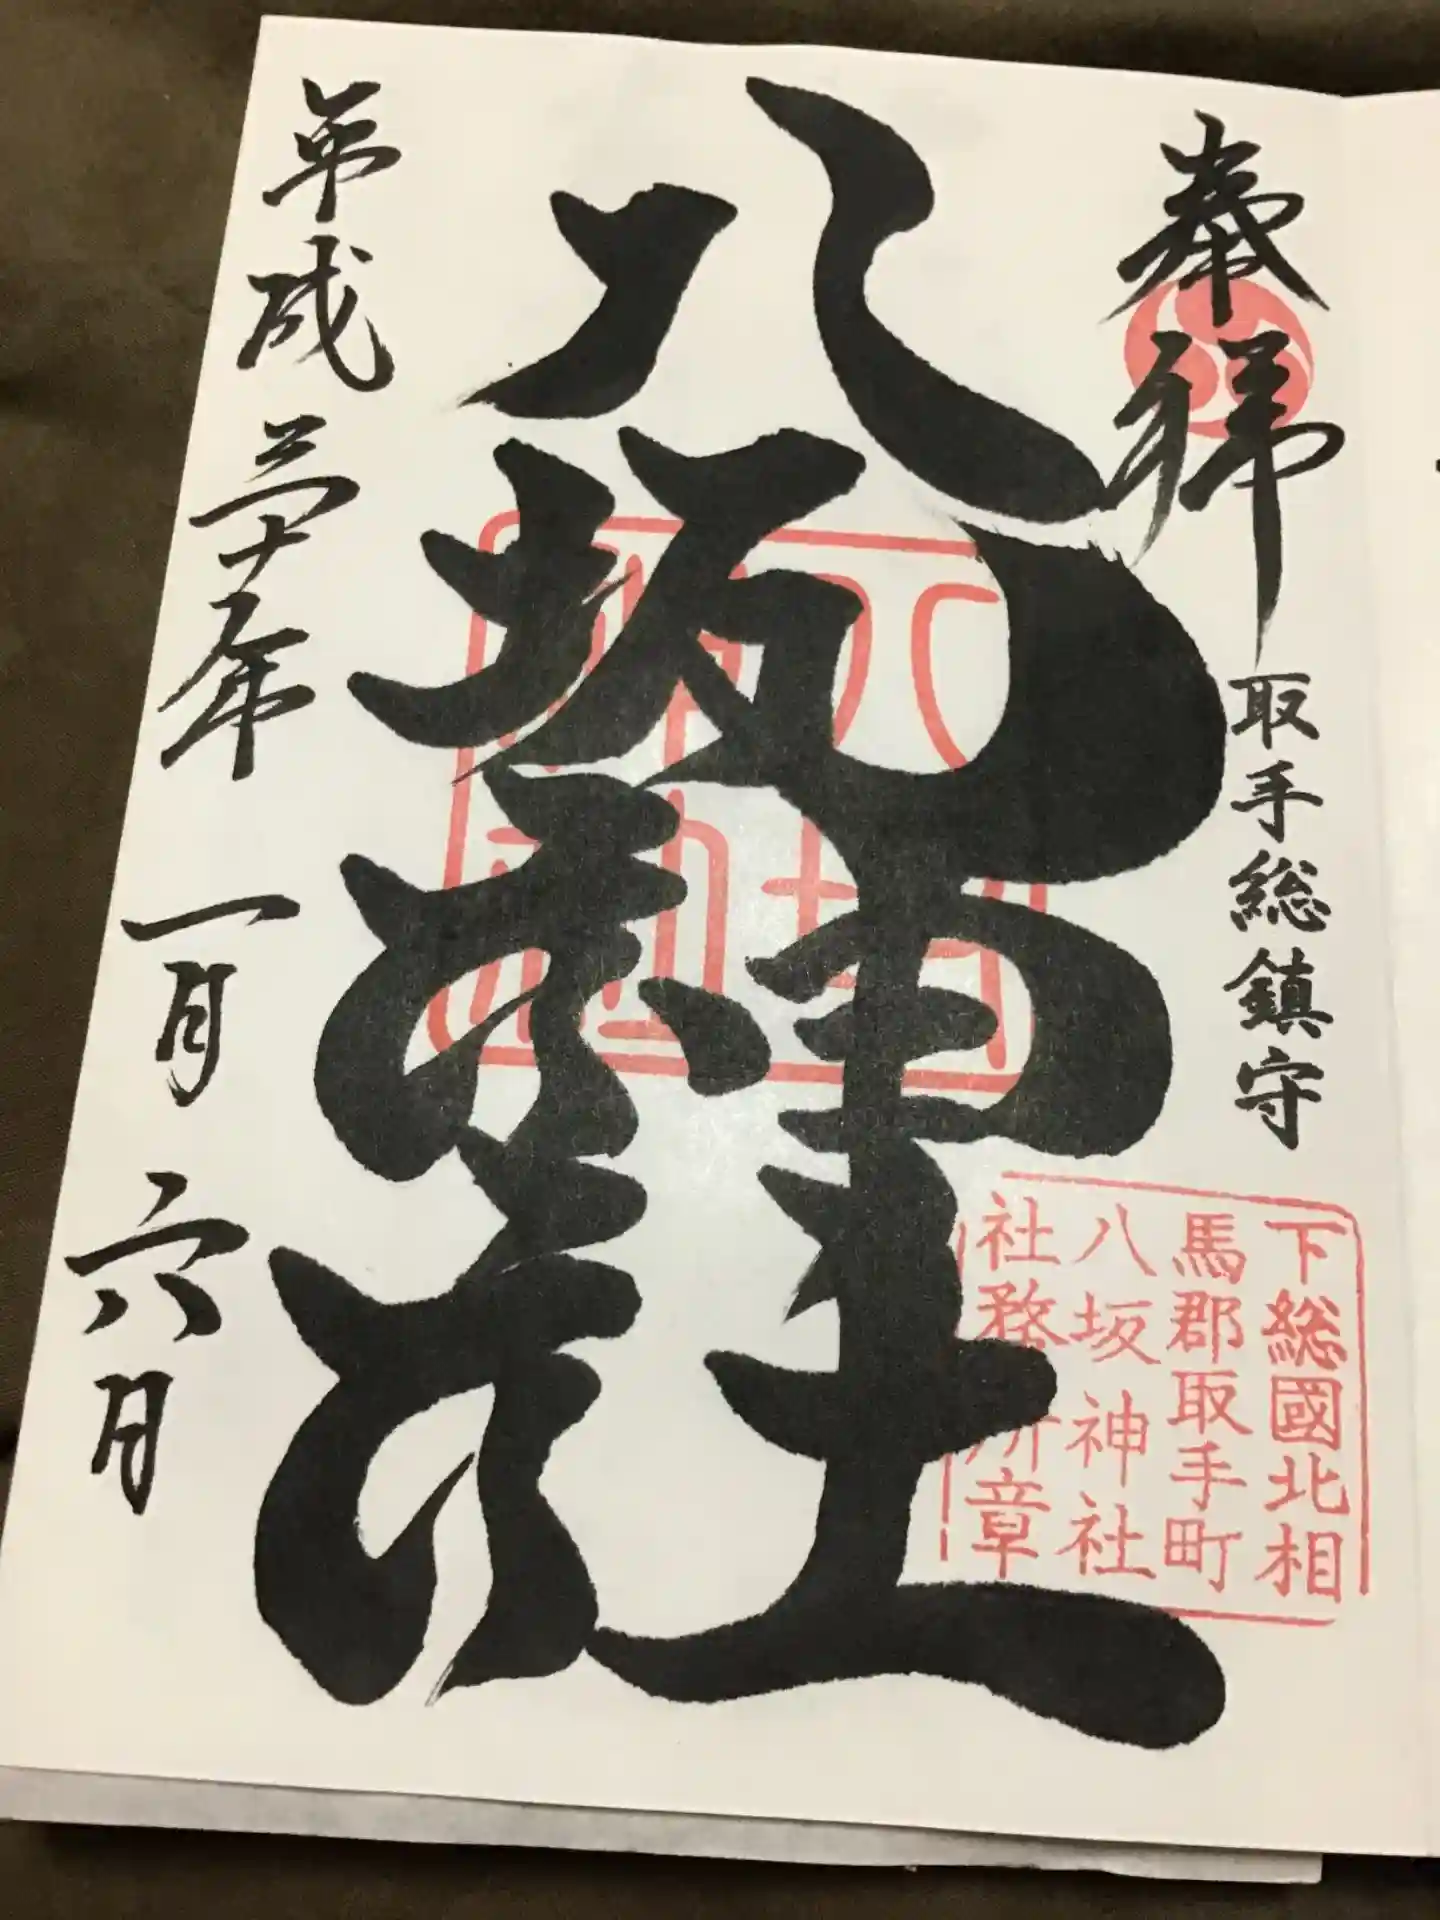 奉拝
取手総鎮守
下総國北相
馬郡取手町
八坂神社
社務所章
八坂神社
平成三十年 一月 六日